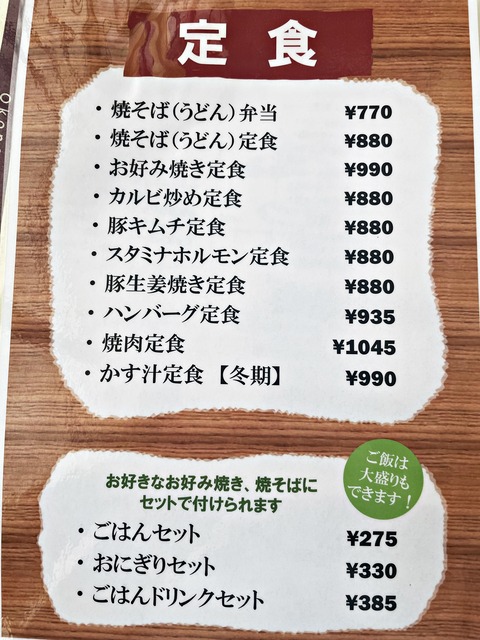 定食
・焼そば(うどん)弁当 ¥770
・焼そば(うどん)定食 ¥880
・お好み焼き定食 ¥990
・カルビ炒め定食 ¥880
・豚キムチ定食 ¥880
・スタミナホルモン定食 ¥880
・豚生姜焼き定食 ¥880
・ハンバーグ定食 ¥935
・焼肉定食 ¥1045
・かす汁定食【冬期】 ¥990
ご飯は
大盛りも
できます!
お好きなお好み焼き、焼そばに
セットで付けられます
・ごはんセット ¥275
・おにぎりセット ¥330
・ごはんドリンクセット ¥385